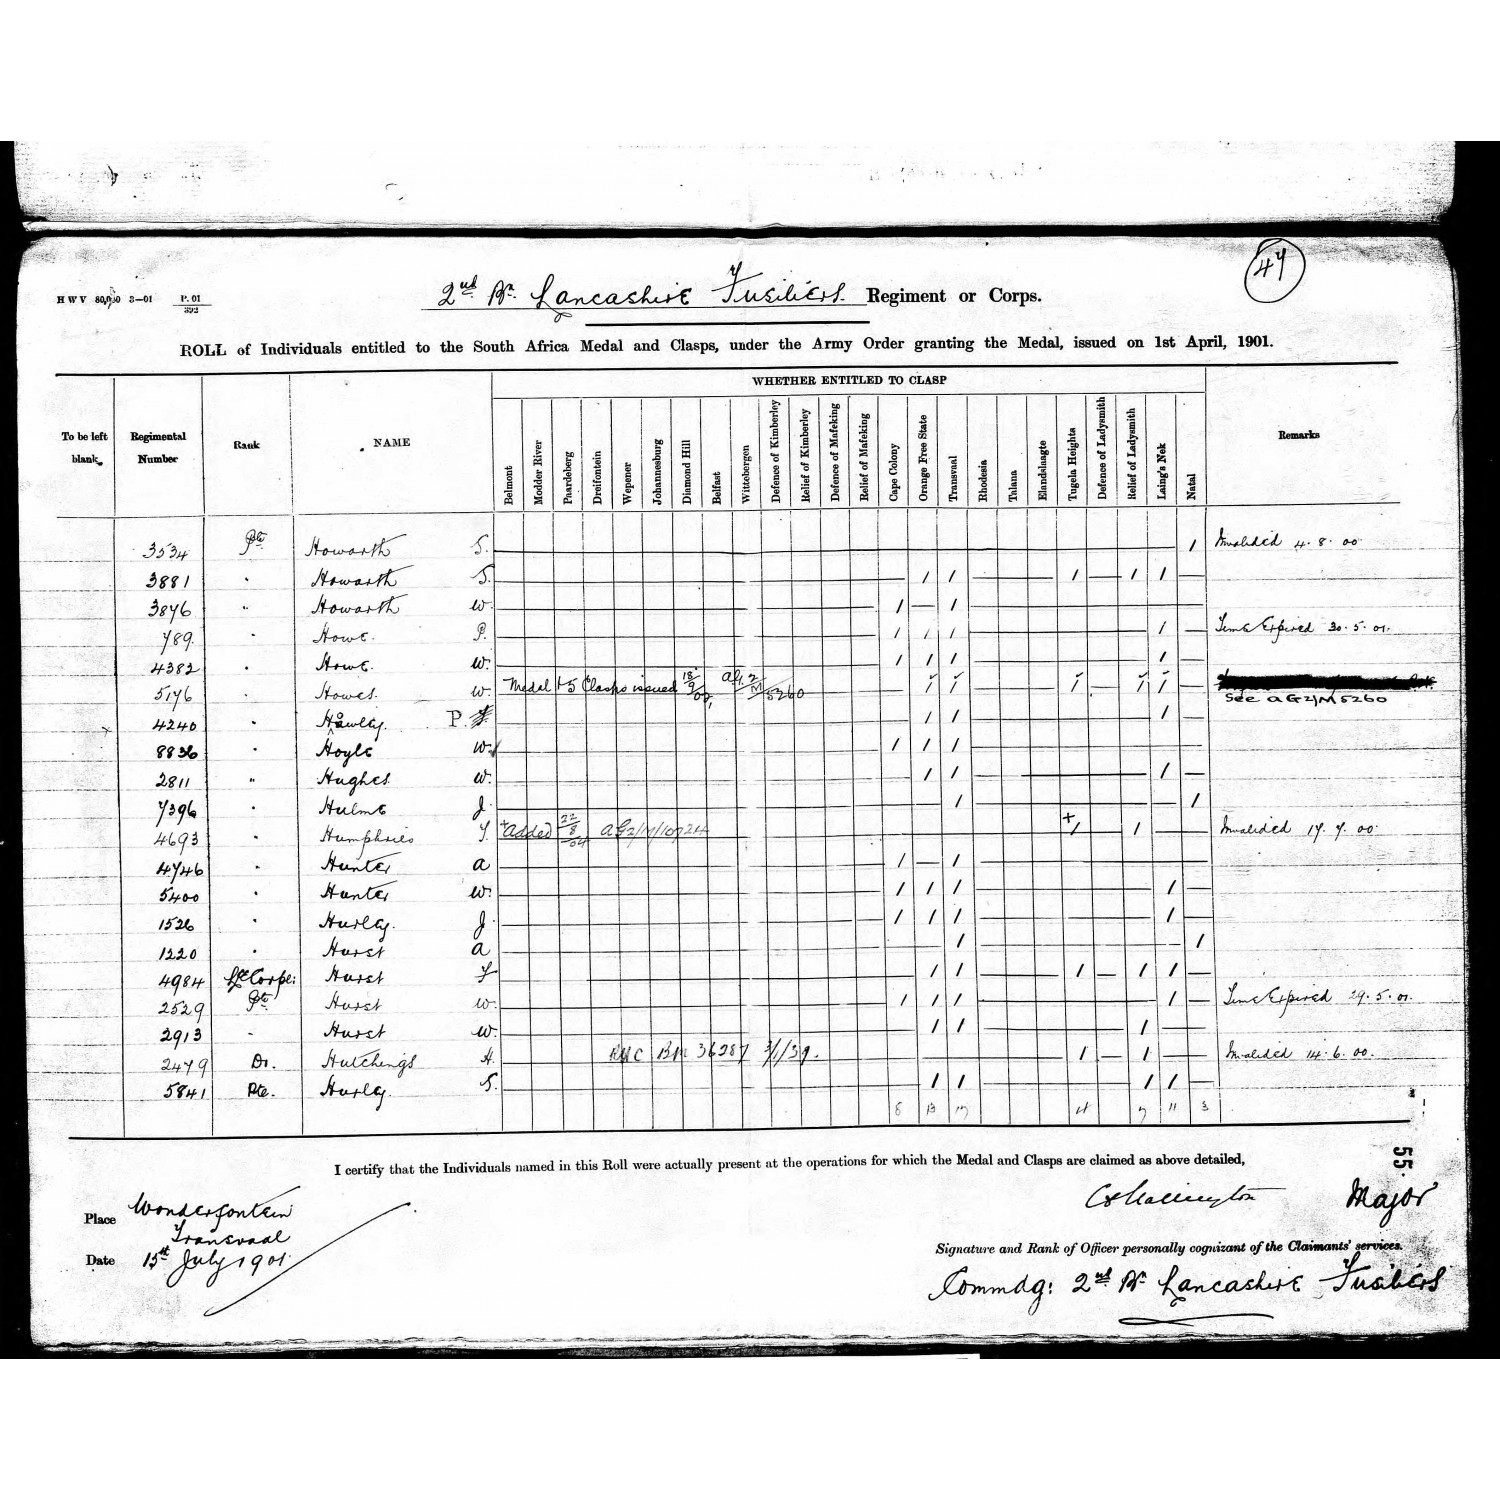 47
HWV 80,000 3—01 P. 01 / 392
2nd Bn. Lancashire Fusiliers Regiment or Corps.
ROLL of Individuals entitled to the South Africa Medal and Clasps, under the Army Order granting the Medal, issued on 1st April, 1901.
WHETHER ENTITLED TO CLASP
To be left blank. Regimental Number Rank NAME Belmont Modder River Paardeberg Dreifontein Wepener Johannesburg Diamond Hill Belfast Wittebergen Defence of Kimberley Relief of Kimberley Defence of Mafeking Relief of Mafeking Cape Colony Orange Free State Transvaal Rhodesia Talana Elandslaagte Tugela Heights Defence of Ladysmith Relief of Ladysmith Laing's Nek Natal Remarks
3534 Pte. Howarth S. 1 Invalided 4.8.00
3881 " Howarth S. 1 1 1 1 1
3876 " Howarth W. 1 1
789. " Howe. P. 1 1 1 1 Time Expired 30.5.01.
4382 " Howe W. 1 1 1 1
5176 " Howes. W. Medal + 5 Clasps issued 18/9/02, 2/M/5260 1 1 1 1 1 See AG2/M5260
4240 " Hawley. P. 1 1 1
8836 " Hoyle W. 1 1 1
2811 " Hughes W. 1 1 1
7396 " Hulme J. 1 1
4693 " Humphries T. + Added 22/8/04 AG2/M/10724 + 1 1 Invalided 17.7.00
4746 " Hunter A 1 1
5400 " Hunter W. 1 1 1 1
1526 " Hurley. J. 1 1 1 1
1220 " Hurst A 1 1
4984 Lce Corpl: Hurst F 1 1 1 1 1
2529 Pte. Hurst W. 1 1 1 1 Time Expired 29.5.01.
2913 " Hurst W. 1 1 1
2479 Dr. Hutchings H. RHC BM 36287 3/1/39. 1 1 Invalided 14.6.00.
5841 Pte. Hurley. S. 1 1 1 1
8 13 17 4 7 11 3
55.
I certify that the Individuals named in this Roll were actually present at the operations for which the Medal and Clasps are claimed as above detailed,
Place Wonderfontein
Transvaal
Major
Date 15th July 1901.
Signature and Rank of Officer personally cognizant of the Claimants' services.
Commdg: 2nd Bn Lancashire Fusiliers